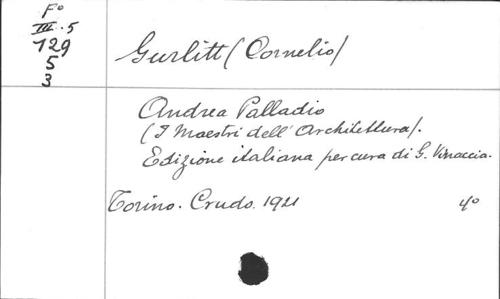 Fº
III.5
129
5
3
Gurlitt (Cornelio)
Andrea Palladio
(I Maestri dell' Architettura).
Edizione italiana per cura di G. Vinaccia.
Torino. Crudo. 1921 4º